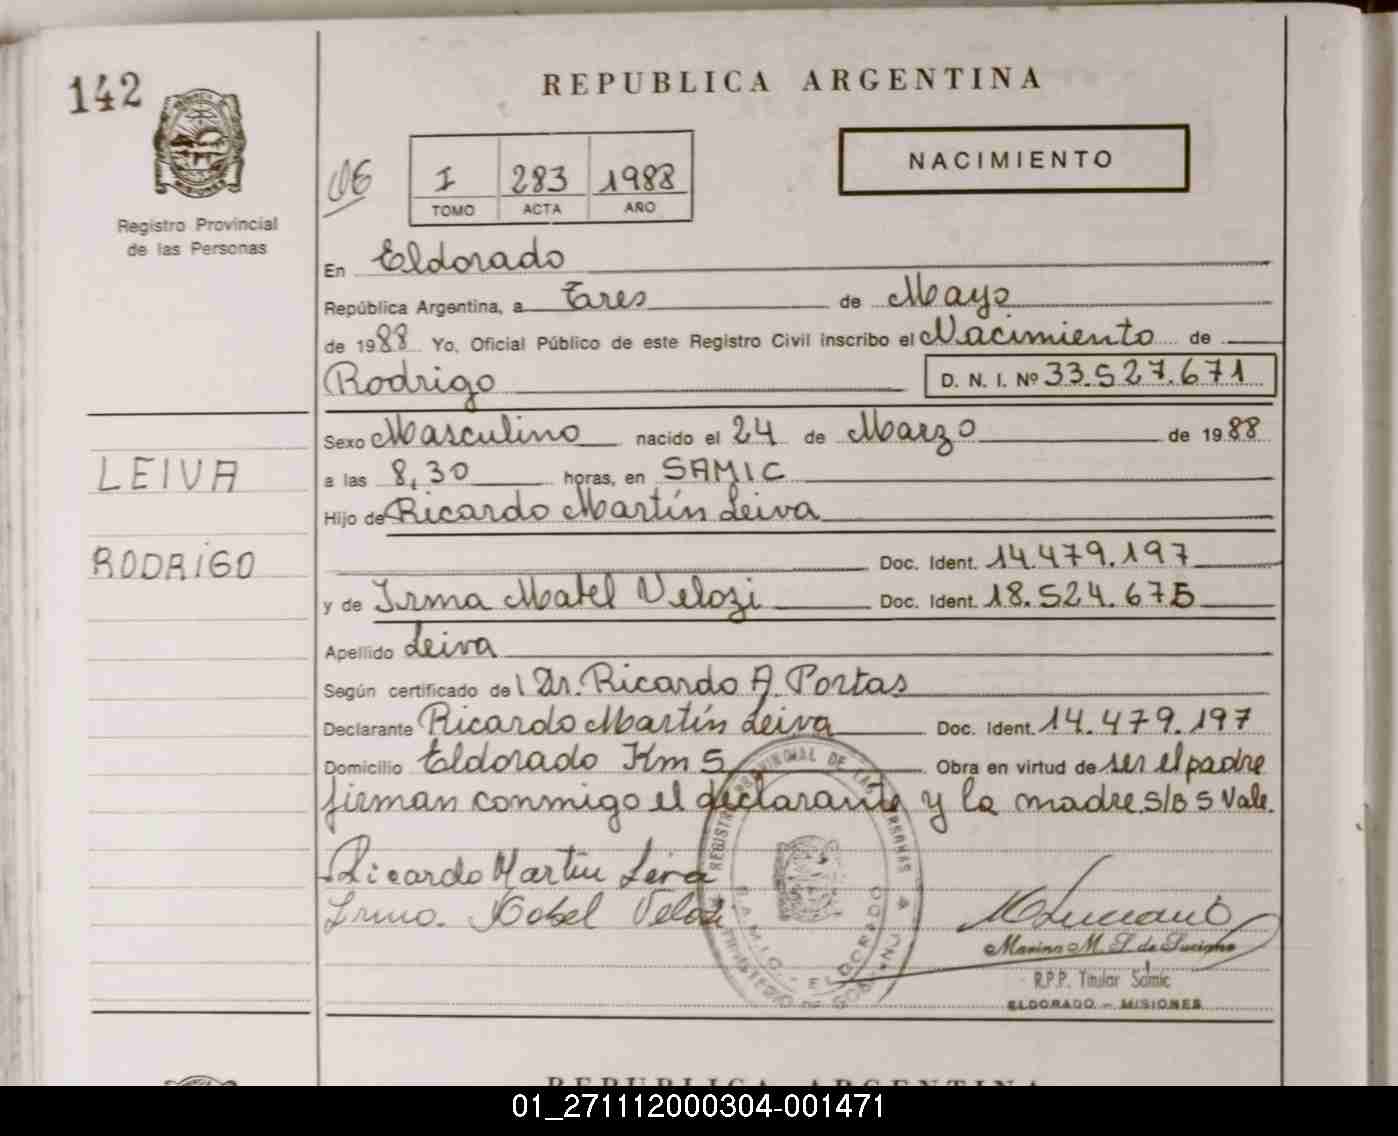 142
REPUBLICA ARGENTINA
NACIMIENTO
06
I 283 1988
TOMO ACTA AÑO
Registro Provincial
de las Personas
En Eldorado
República Argentina, a Tres de Mayo
de 1988 Yo, Oficial Público de este Registro Civil inscribo el Nacimiento de
Rodrigo D. N. I. Nº 33.527.671
Sexo Masculino nacido el 24 de Marzo de 1988
a las 8,30 horas, en SAMIC
Hijo de Ricardo Martín Leiva
Doc. Ident. 14.479.197
y de Irma Mabel Velozi Doc. Ident. 18.524.675
Apellido Leiva
Según certificado del Dr. Ricardo A. Portas
Declarante Ricardo Martín Leiva Doc. Ident. 14.479.197
Domicilio Eldorado Km 5 Obra en virtud de ser el padre
firman conmigo el declarante y la madre. S/B 5 Vale.
LEIVA
RODRIGO
Ricardo Martin Leiva
Irma Mabel Velozi
REGISTRO PROVINCIAL DE LAS PERSONAS
S.A.M.I.C. - ELDORADO
MINISTERIO DE GOBIERNO
Marina M. de
R.P.P. Titular Samic
ELDORADO - MISIONES
REPUBLICA ARGENTINA
01_271112000304-001471